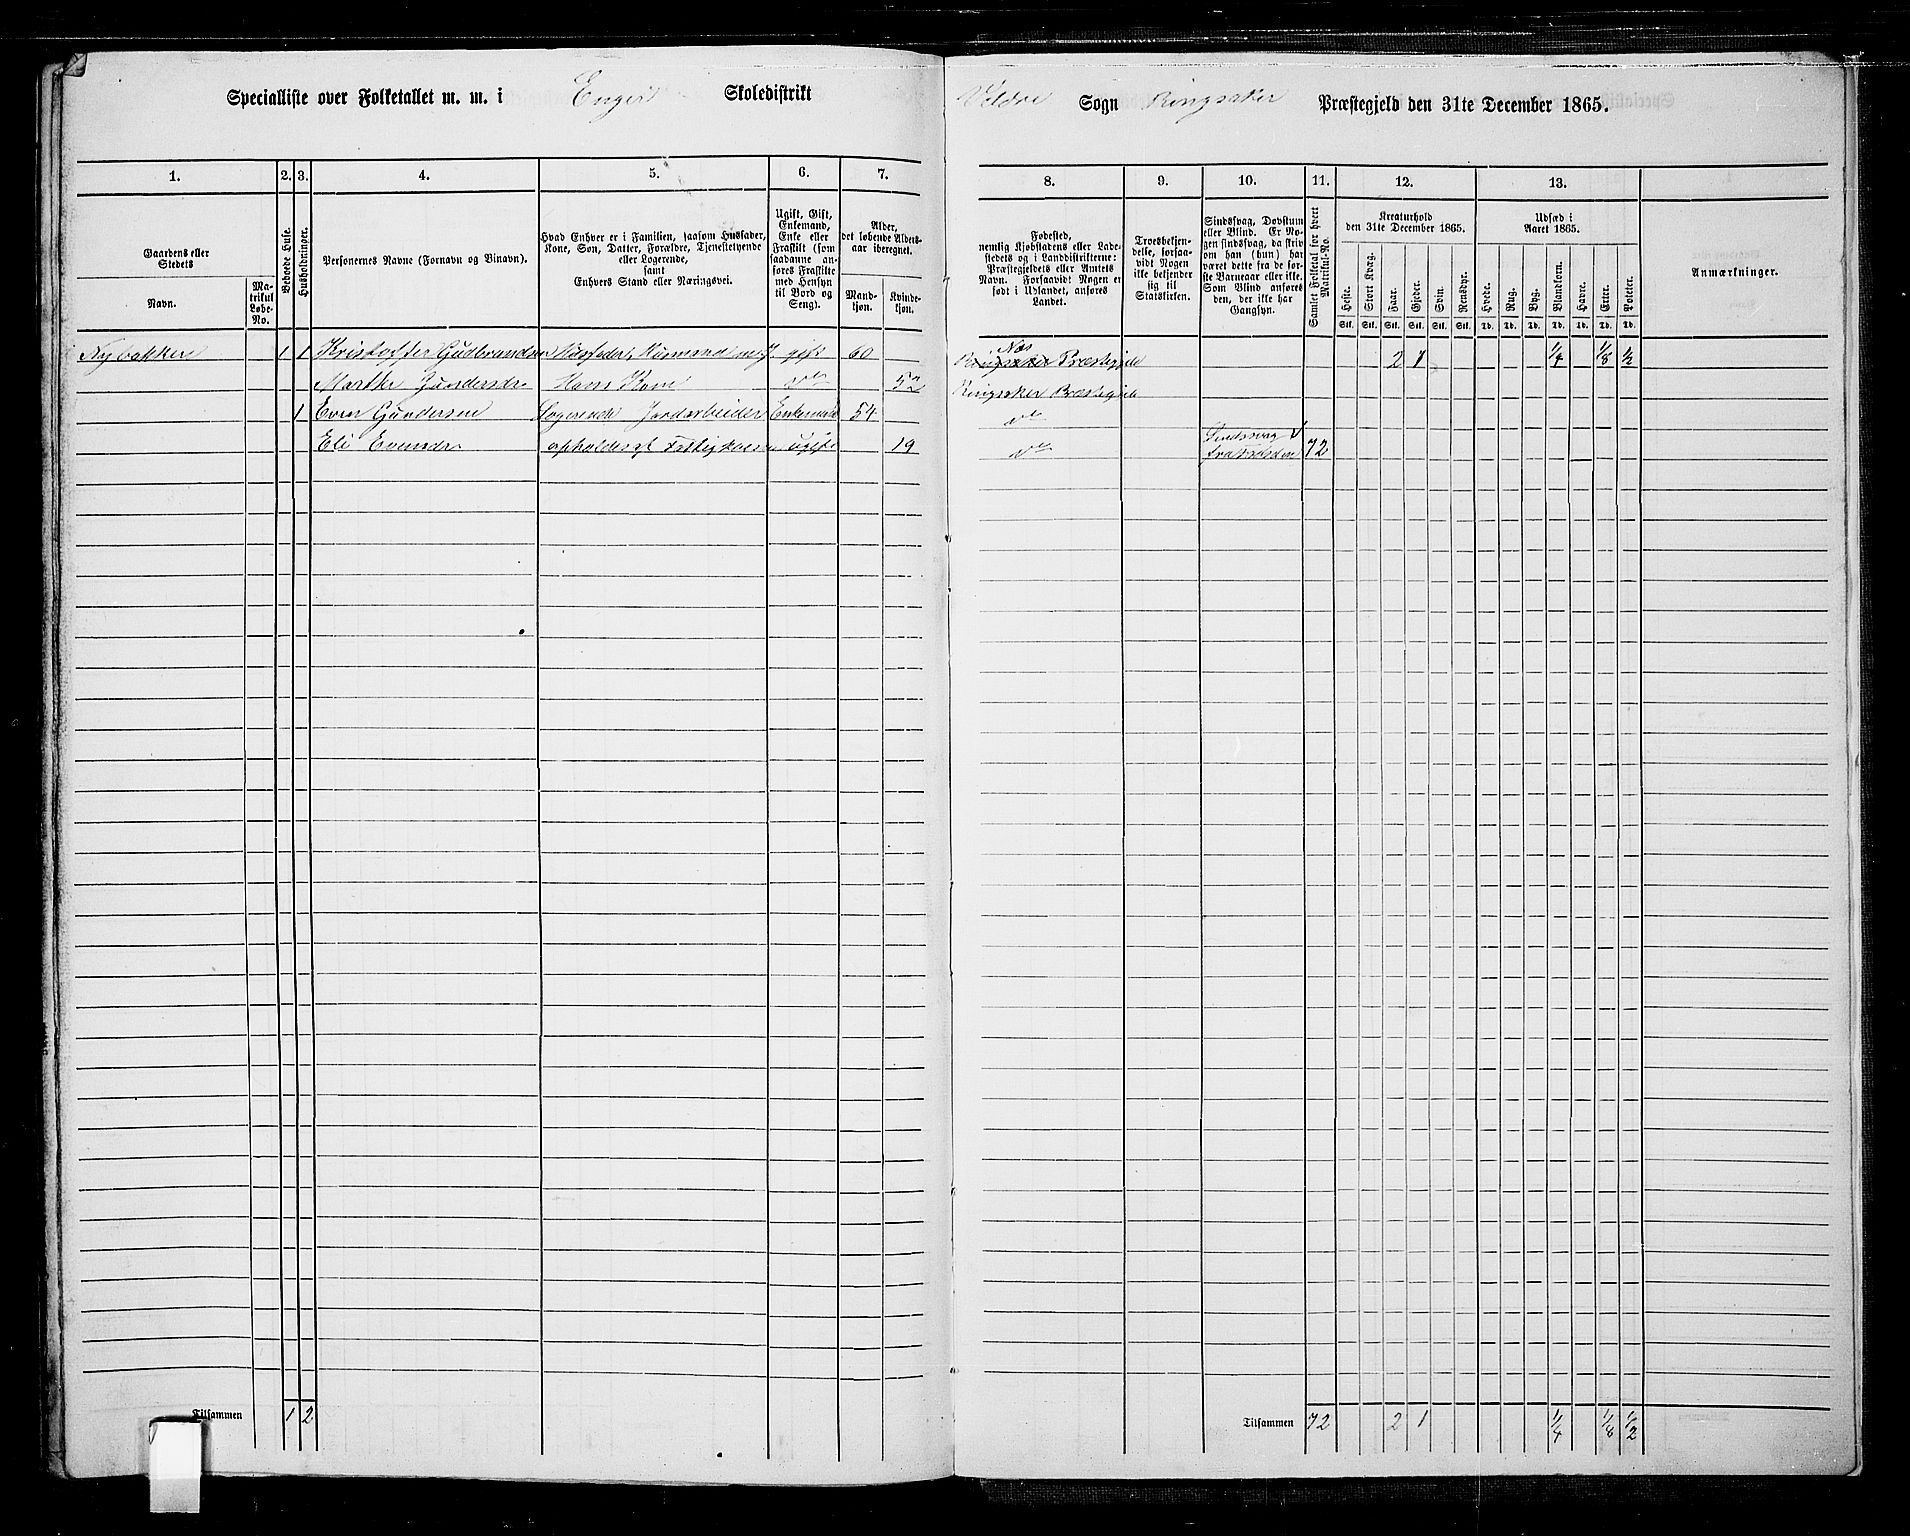 Specialliste over Folketallet m. m. i Enger Skoledistrikt
Veldre Sogn Ringsaker Præstegjeld den 31te December 1865.
1. 2. 3. 4. 5. 6. 7.
8. 9. 10. 11. 12. 13.
Gaardens eller Stedets
Navn.
Matrikul Løbe-No.
Beboede Huse.
Husholdninger.
Personernes Navne (Fornavn og Vinavn).
Hvad Enhver er i Familien, saasom Husfader, Kone, Søn, Datter, Forældre, Tjenestetyende eller Logerende,
samt
Enhvers Stand eller Næringsvei.
Ugift, Gift, Enkemand, Enke eller Fraskilt (som saadanne anføres Fraskilte med Hensyn til Bord og Seng).
Alder, det løbende Aldersaar iberegnet.
Mandkjøn.
Kvindekjøn.
Fødested,
nemlig Kjøbstadens eller Ladestedets og i Landdistrikterne: Præstegjeldets eller Amtets Navn. Forsaavidt Nogen er født i Udlandet, anføres Landet.
Troesbekjendelse, forsaavidt Nogen ikke bekjender sig til Statskirken.
Sindssvag, Døvstum eller Blind. Er Nogen sindssvag, da skriv om han (hun) har været dette fra de første Barneaar eller ikke. Som Blind anføres den, der ikke har Gangsyn.
Samlet Folketal for hvert Matrikul-No.
Kreaturhold den 31te December 1865.
Heste. Stort Kvæg. Faar. Gjeder. Svin. Rensdyr.
Stk. Stk. Stk. Stk. Stk. Stk.
Udsæd i Aaret 1865.
Hvede. Rug. Byg. Blandkorn. Havre. Erter. Poteter.
Td. Td. Td. Td. Td. Td. Td.
Anmærkninger.
Nybakken 1 1 Kristoffer Gudbrandsen Husfader, Husmand m. J. gift 60 Næs
Ringsaker Præstegjeld 2 1 1/4 1/8 1/2
Marthe Gundersdr Hans Kone do Ringsaker Præstegjeld
1 Even Gundersen Logerende Jordarbeider Enkemand 54 do
Eli Evensdr ugift 19 do Sindssvag fra Fødselen 72
Tilsammen 1 2
Tilsammen 72 2 1 1/4 1/8 1/2